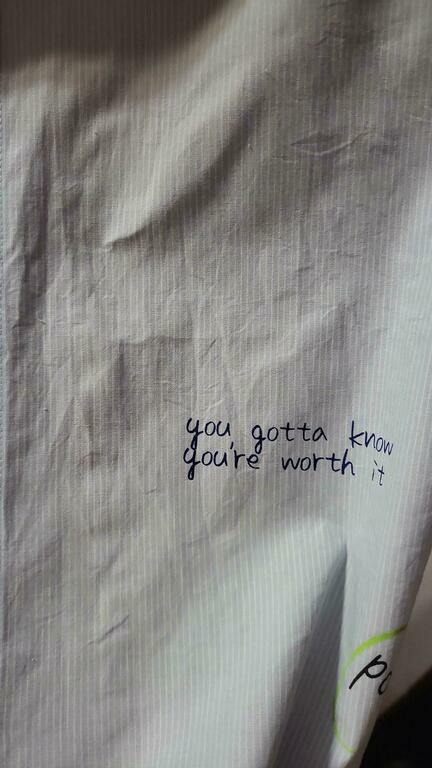 you gotta know
you're worth it